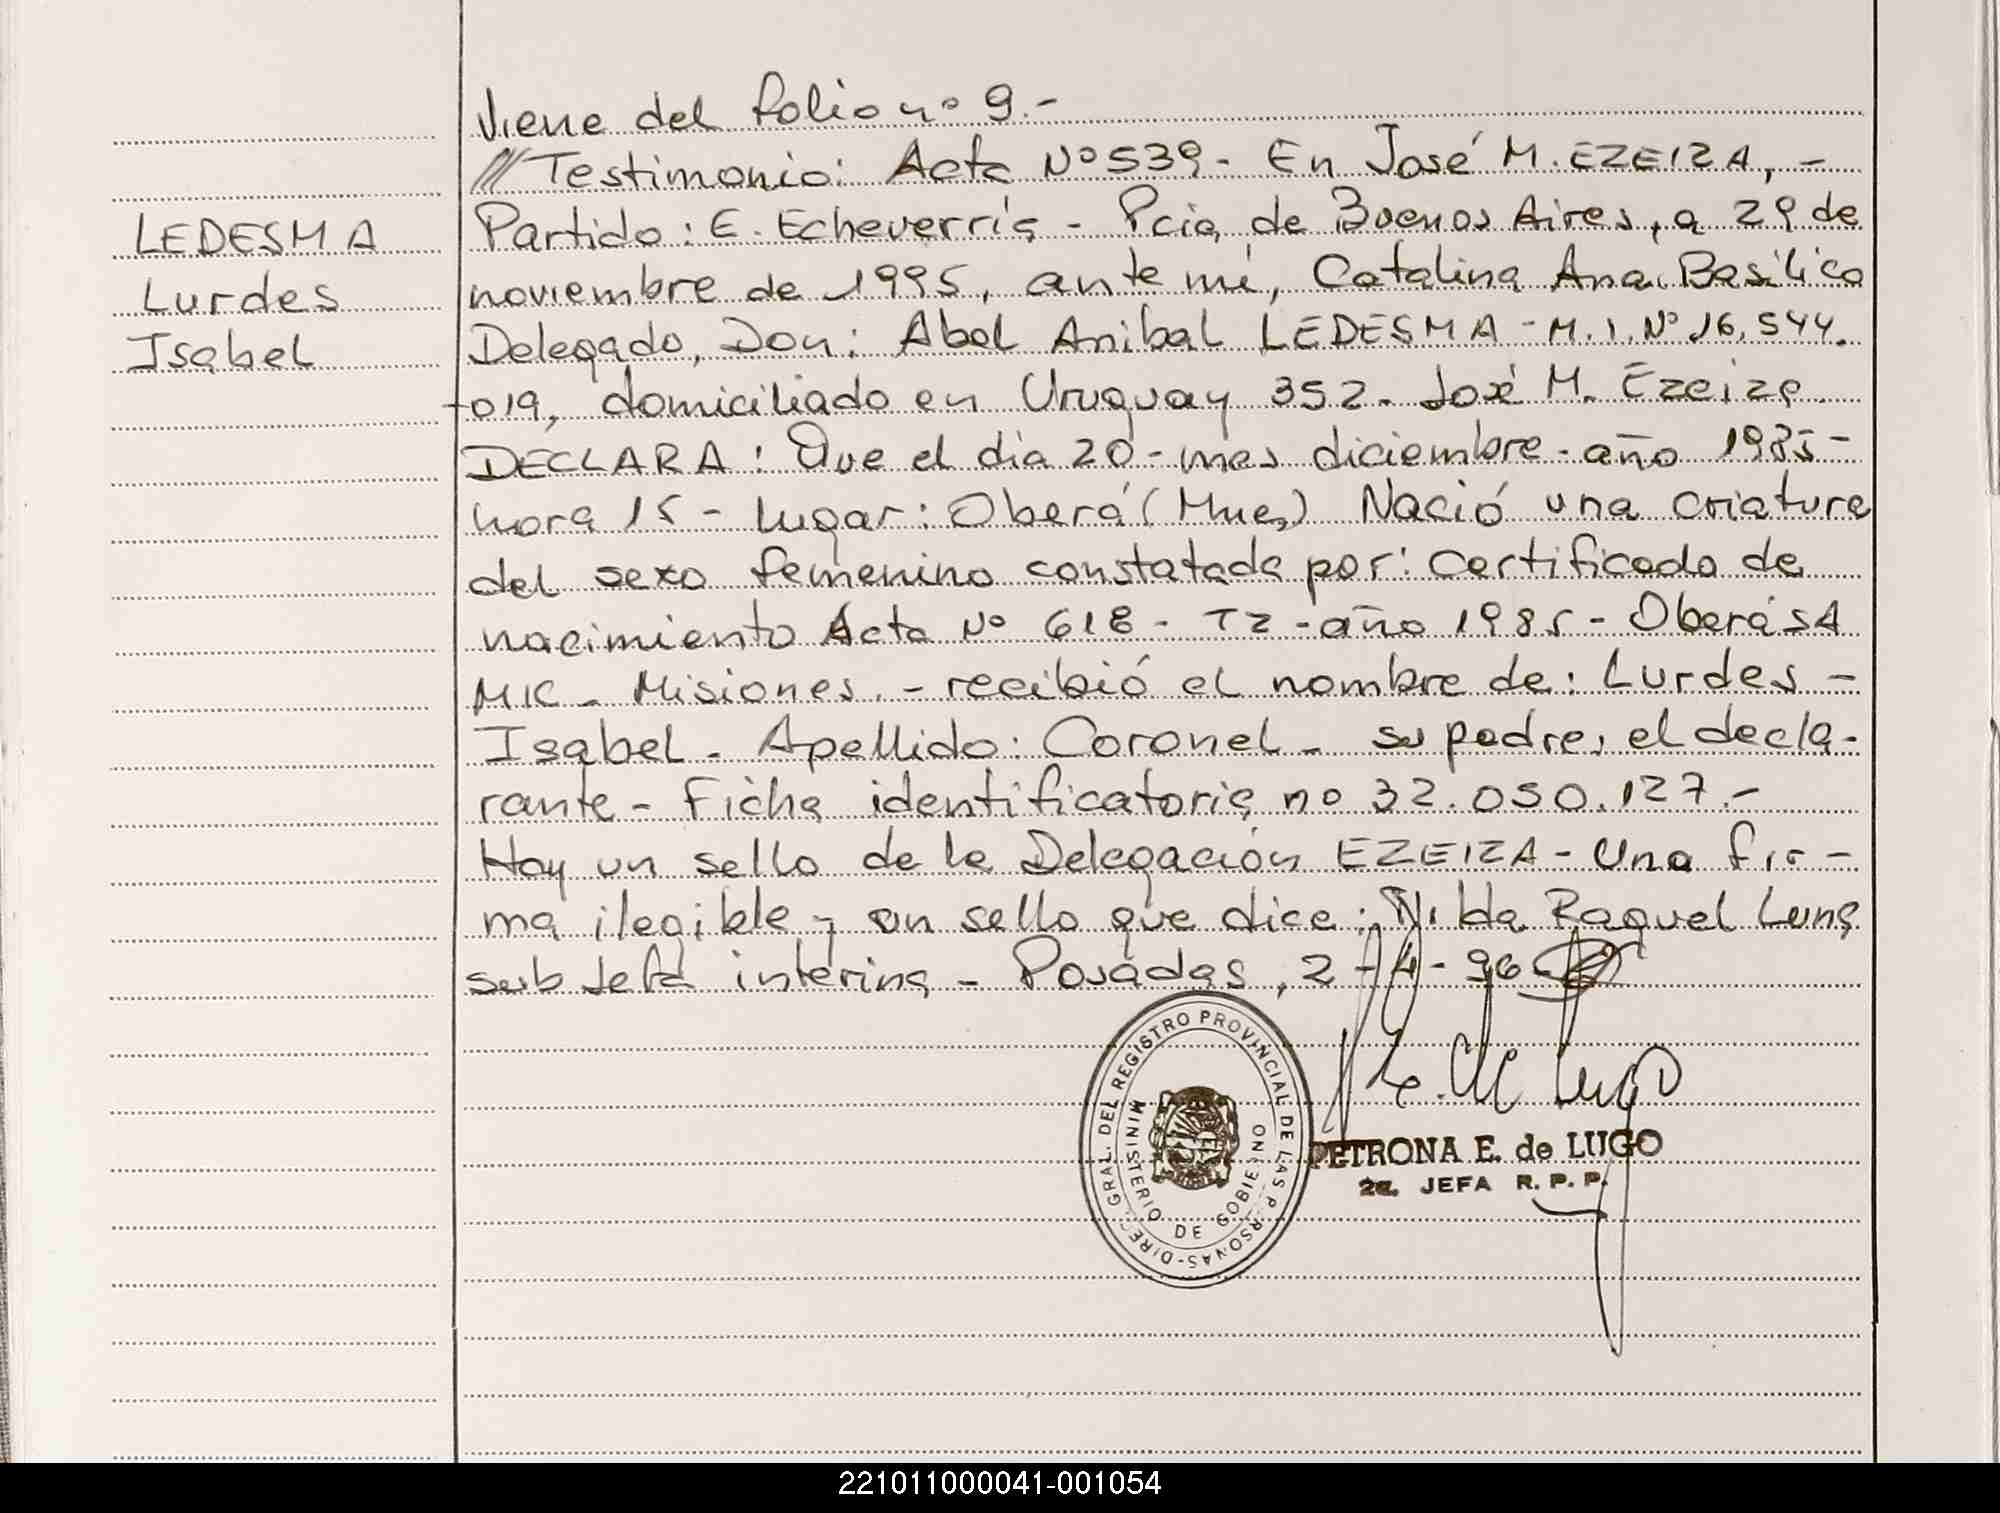 Viene del folio nº 9.-
/// Testimonio: Acta Nº 539- En José M. EZEIZA, -
LEDESMA
Lurdes
Isabel
Partido: E. Echeverría - Pcia, de Buenos Aires, a 29 de
noviembre de 1995, ante mí, Catalina Ana Basilico
Delegado, Don: Abel Anibal LEDESMA - M.I. Nº 16.544.
+019, domiciliado en Uruguay 352. José M. Ezeiza.
DECLARA: Que el día 20- mes diciembre- año 1985-
hora 15 - Lugar: Oberá (Mnes) Nació una criatura
del sexo femenino constatada por: Certificado de
nacimiento Acta Nº 618- T2 -año 1985- Oberá
Misiones. - recibió el nombre de: Lurdes -
Isabel. Apellido: Coronel - su padre, el decla-
rante - Ficha identificatoria nº 32.050.127.-
Hay un sello de la Delegación EZEIZA- Una fir-
ma ilegible y un sello que dice: Nilda Raquel Luna
sub Jefa interina - Posadas, 2-4-96
P. E. de Lugo
DIREC. GRAL. DEL REGISTRO PROVINCIAL DE LAS P RSONAS-
MINISTERIO DE GOBIERNO
PETRONA E. de LUGO
2a. JEFA R. P. P.
221011000041-001054